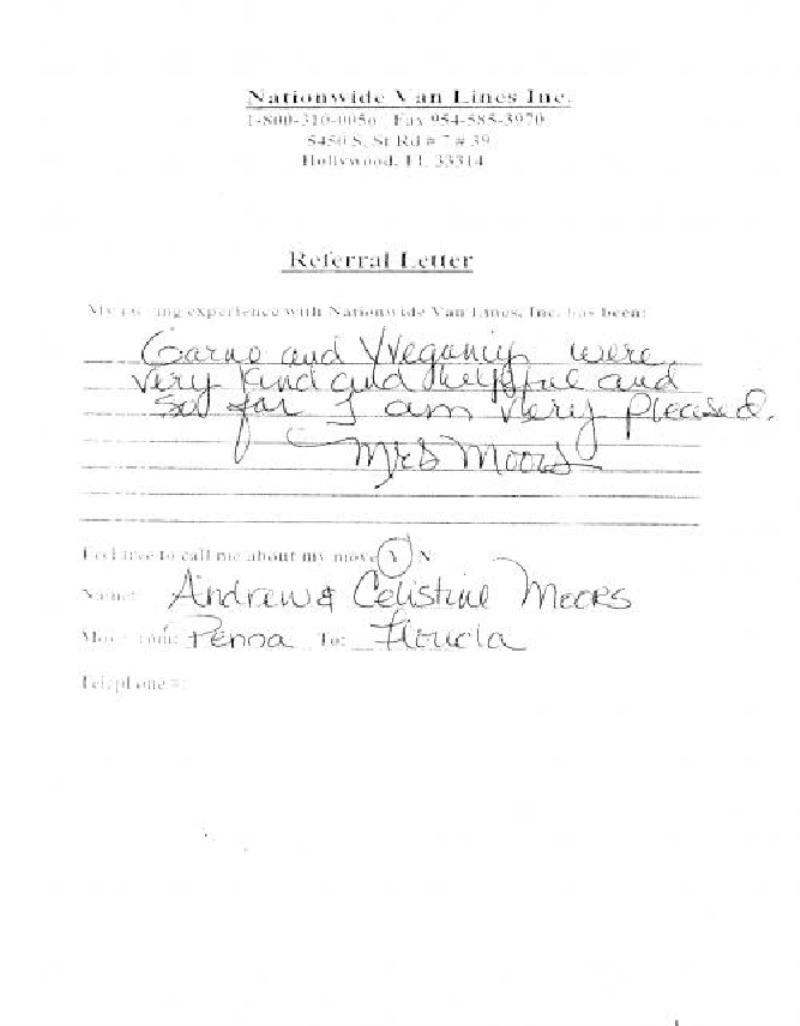 Nationwide Van Lines Inc.
1-800-310-0056 Fax 954-585-3970
5450 S. St Rd # 7 # 39
Hollywood, FL 33314
Referral Letter
My moving experience with Nationwide Van Lines, Inc. has been:
and were
very kind and helpful and
so far I am very pleased.
Mrs Moors
Feel free to call me about my move Y N
Name: Andrew & Celistine Moors
Move from: Penna To: Florida
Telephone #: